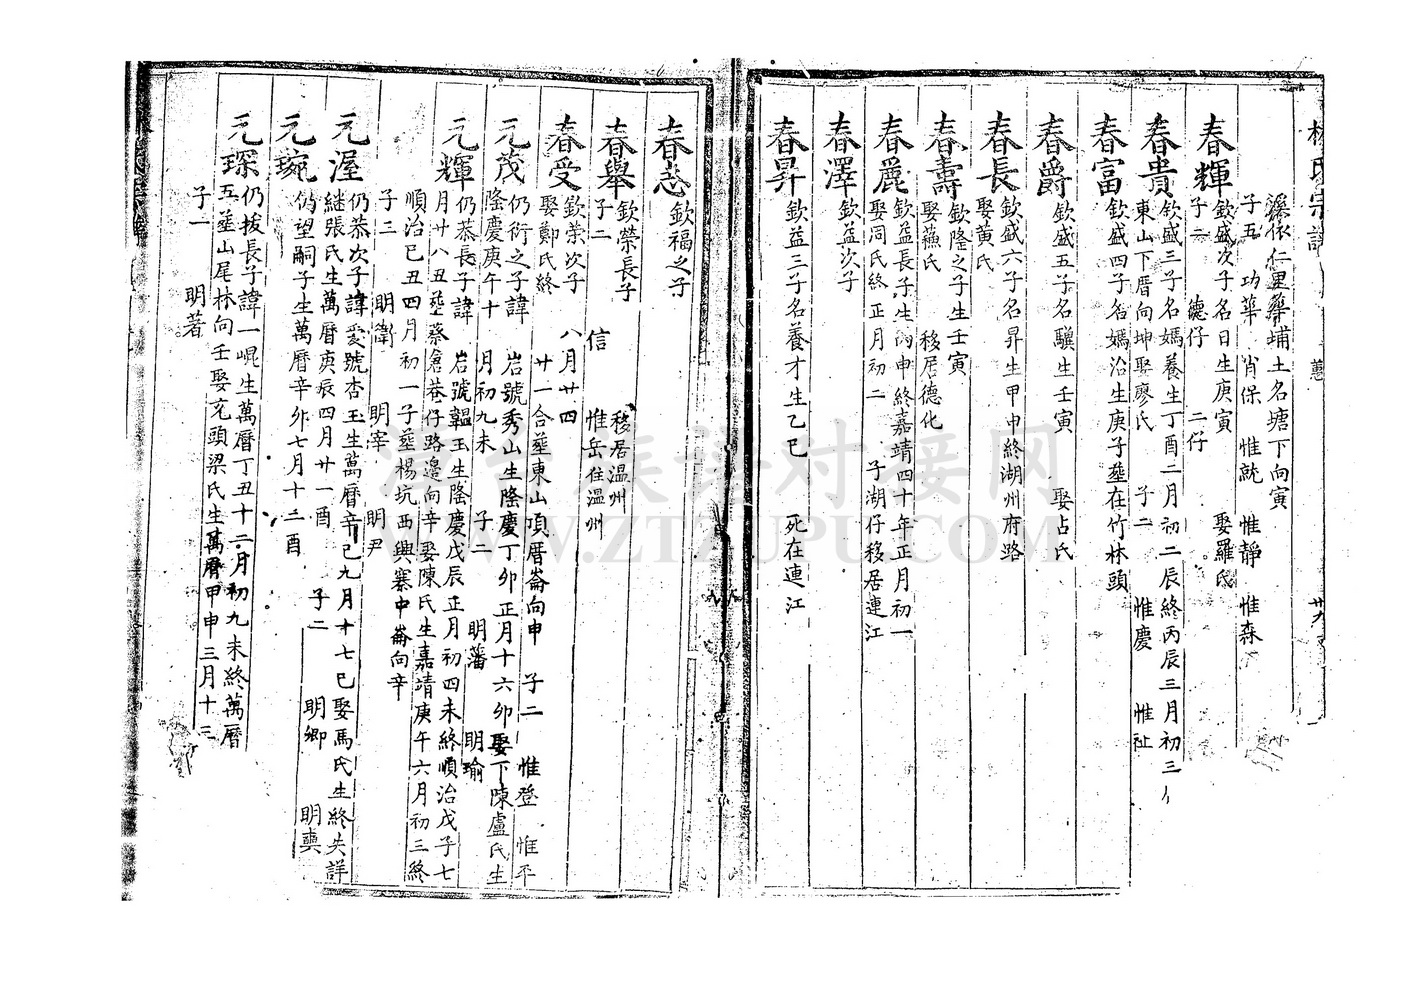 楊氏宗譜
廿九
溪依仁里築埔土名塘下向寅
子五 功築 肖保 惟就 惟靜 惟森
春輝 欽盛次子名日生庚寅 娶羅氏
子二 德仔 二仔
春貴 欽盛三子名媽養生丁酉二月初二辰終丙辰三月初三
東山下厝向坤娶廖氏 子二 惟慶 惟祉
春富 欽盛四子名媽治生庚子塟在竹林頭
春爵 欽盛五子名驥生壬寅 娶占氏
春長 欽盛六子名昇生甲申終湖州府路
娶黃氏
春壽 欽隆之子生壬寅
娶蘇氏 移居德化
春麗 欽益長子生丙申終嘉靖四十年正月初一
娶洞氏終正月初二 子湖仔移居連江
春澤 欽益次子
春昇 欽益三子名養才生乙巳 死在連江
春 欽福之子
春舉 欽榮長子 移居溫州
子二 信 惟岳住溫州
春受 欽榮次子 八月廿四
娶鄭氏終 廿一合塟東山項厝崙向申 子二 惟登 惟平
元茂 仍衍之子諱 岩號秀山生隆慶丁卯正月十六卯娶下陳盧氏生
隆慶庚午十 月初九未 子二 明藩 明瑜
元輝 仍恭長子諱 岩號韞玉生隆慶戊辰正月初四未終順治戊子七
月廿八丑塟蔡詹巷仔路邊向辛娶陳氏生嘉靖庚午六月初三終
順治巳丑四月初一子塟楊坑西興寨中崙向辛
子三 明衛 明宰 明尹
元渥 仍恭次子諱愛號杏玉生萬曆辛巳九月十七巳娶馬氏生終失詳
繼張氏生萬曆庚辰四月廿一酉 子二 明卿 明奭
元琬 仍望嗣子生萬曆辛卯七月十二酉
元琛 仍拔長子諱一崐生萬曆丁丑十二月初九未終萬曆
五塟山尾林向壬娶充頭梁氏生萬曆甲申三月十三
子一 明著
海台族谱对接网
WWW.ZTZUPU.COM